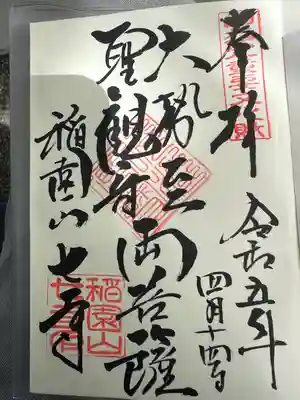 奉拝
令和五年
四月十四日
大勢至
聖観音
両菩薩
稲園山
七寺
稲園山
七寺